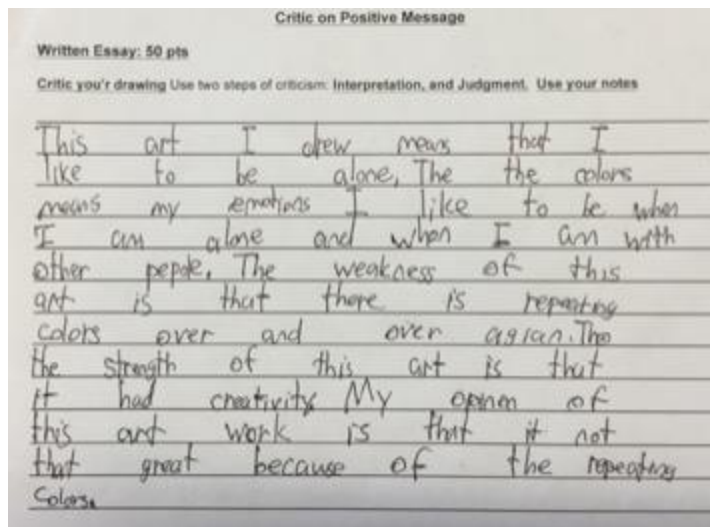 Critic on Positive Message
Written Essay: 50 pts
Critic you'r drawing Use two steps of criticism: Interpretation, and Judgment. Use your notes
This art I drew means that I
like to be alone, The the colors
means my emotions I like to be when
I am alone and when I am with
other pepole, The weakness of this
art is that there is repeating
colors over and over agian. The
the strength of this art is that
it had creativity My opinon of
this art work is that it not
that great because of the repeating
colors.